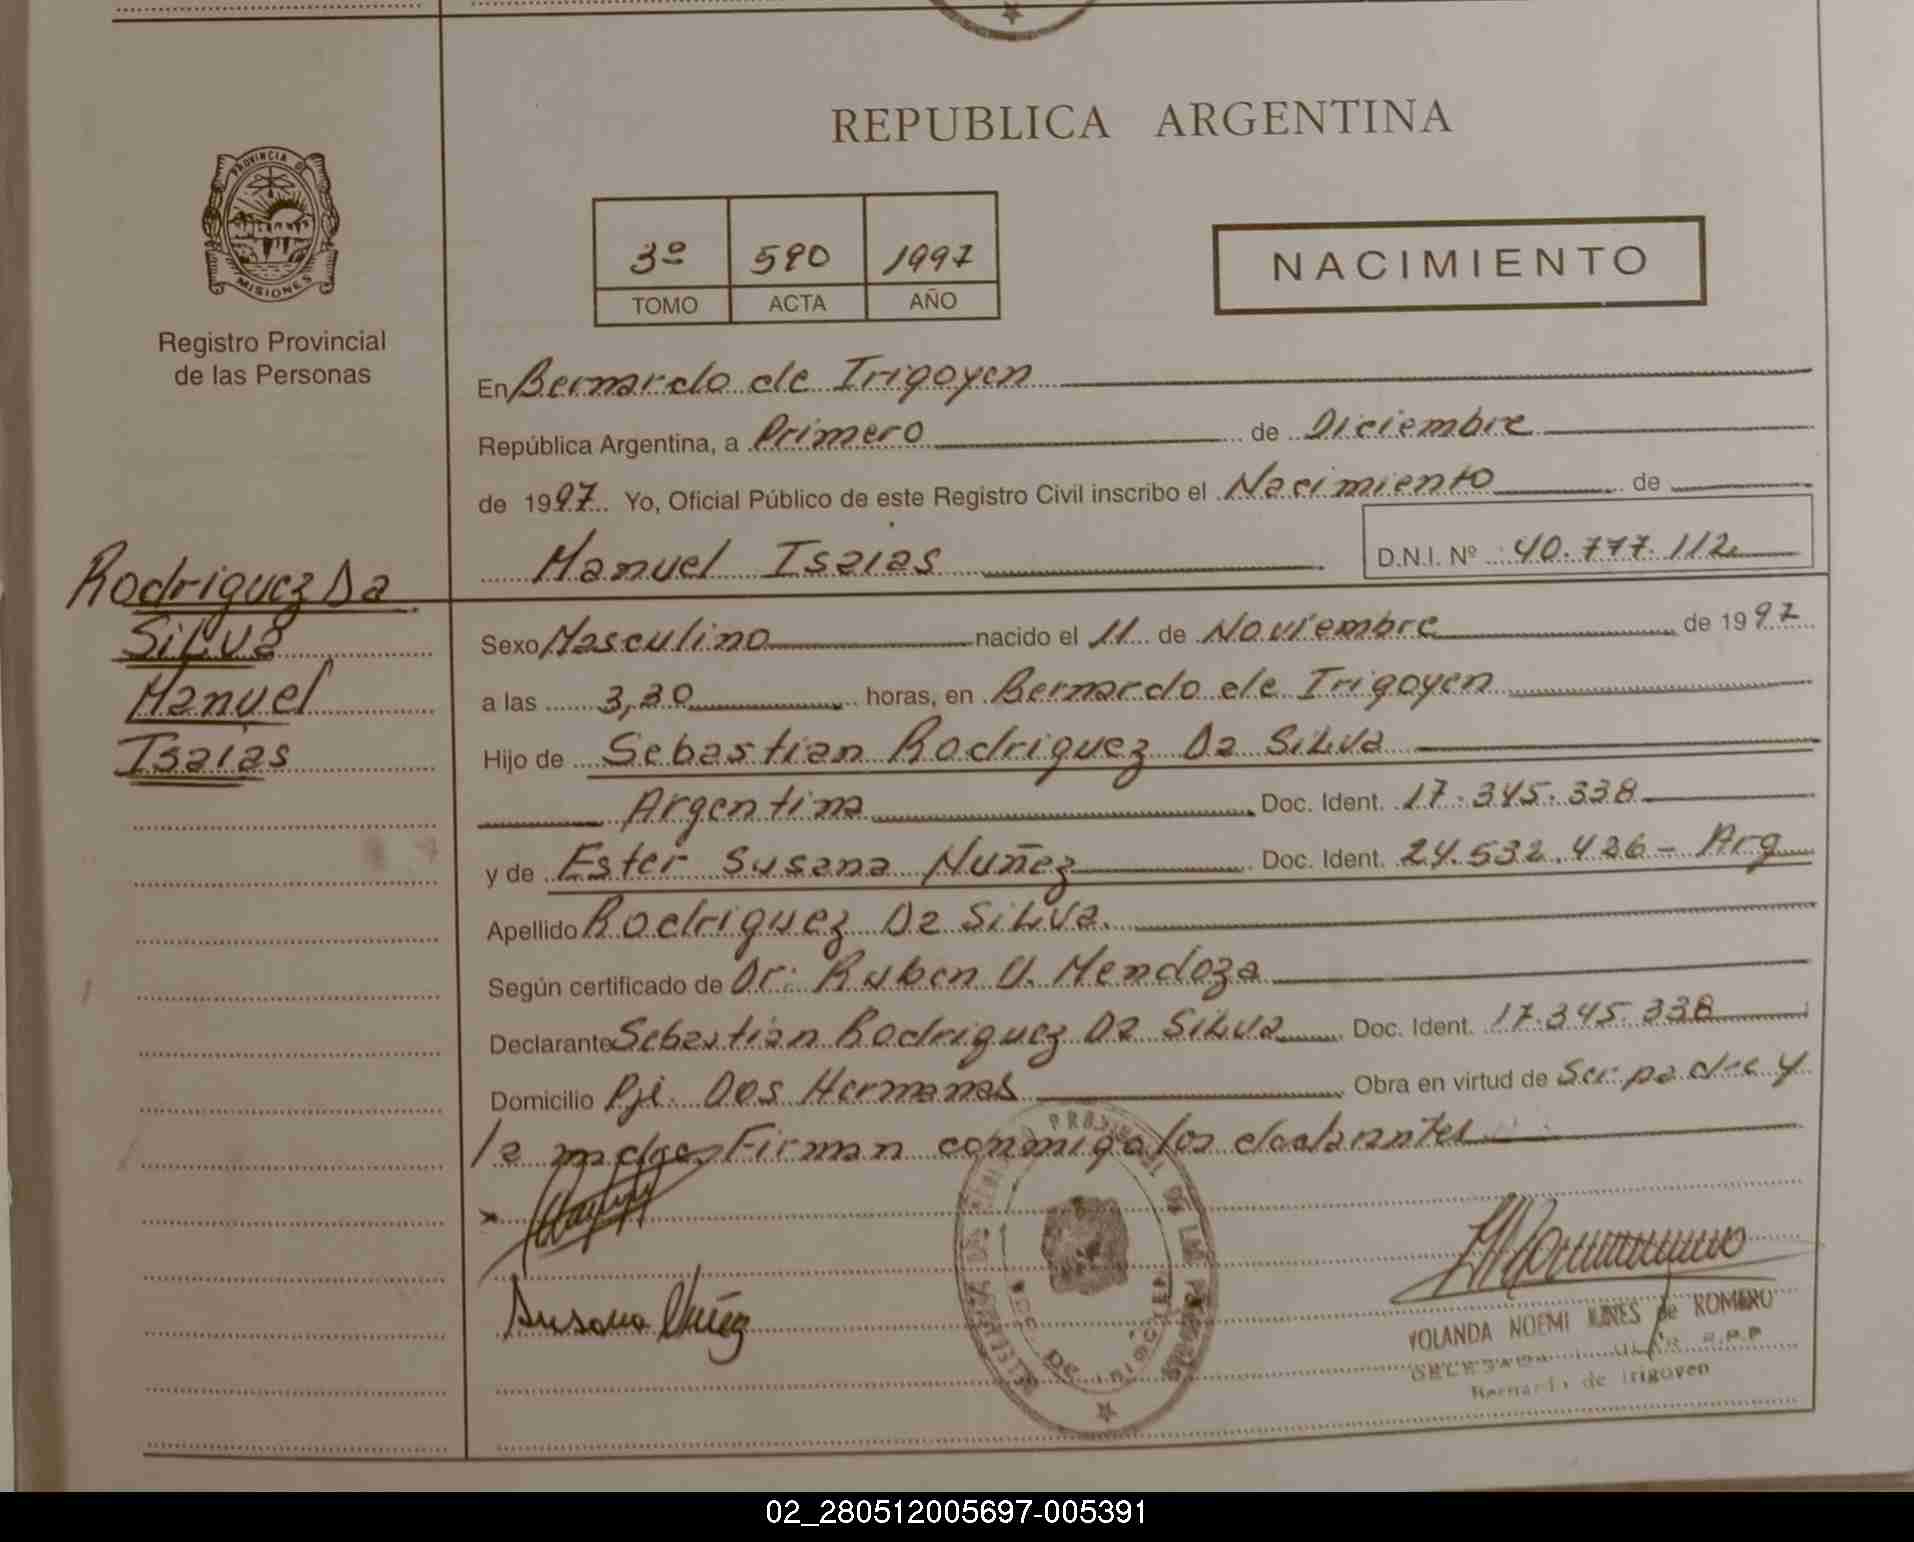 REPUBLICA ARGENTINA
PROVINCIA DE
MISIONES
Registro Provincial
de las Personas
3º 590 1997
TOMO ACTA AÑO
NACIMIENTO
En Bernardo de Irigoyen
República Argentina, a Primero de Diciembre
de 1997. Yo, Oficial Público de este Registro Civil inscribo el Nacimiento de
Manuel Isaias D.N.I. Nº 40.777.112
Rodriguez Da
Silva
Manuel
Isaias
Sexo Masculino nacido el 11 de Noviembre de 1997
a las 3,30 horas, en Bernardo de Irigoyen
Hijo de Sebastian Rodriguez Da Silva
Argentina Doc. Ident. 17.345.338
y de Ester Susana Nuñez Doc. Ident. 24.532.426 - Arg
Apellido Rodriguez Da Silva.
Según certificado de Dr: Ruben V. Mendoza
Declarante Sebastian Rodriguez Da Silva Doc. Ident. 17.345.338
Domicilio Pje. Dos Hermanas Obra en virtud de Ser padre y
la madre Firman conmigo los declarantes
Susana Nuñez
YOLANDA NOEMI NUNES de ROMERO
R.P.P
Bernardo de Irigoyen
02_280512005697-005391